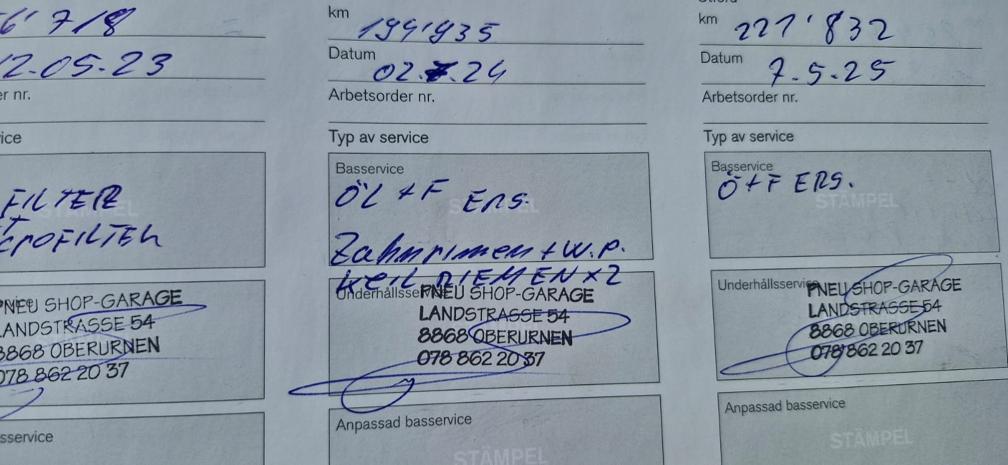 6'718
12-05-23
er nr.
ice
FILTER
STÄMPEL
+
CROFILTER
PNEU SHOP-GARAGE
LANDSTRASSE 54
8868 OBERURNEN
078 862 20 37
sservice
km
199'935
Datum
02.7.24
Arbetsorder nr.
Typ av service
Basservice
ÖL + F ERS.
Zahnrimen + W.P.
KEIL RIEMEN x2
Underhållsse
PNEU SHOP-GARAGE
LANDSTRASSE 54
8868 OBERURNEN
078 862 20 37
Anpassad basservice
STÄMPEL
km
221'832
Datum
7.5.25
Arbetsorder nr.
Typ av service
Basservice
Ö+F ERS.
STÄMPEL
Underhållsservice
PNEU SHOP-GARAGE
LANDSTRASSE 54
8868 OBERURNEN
078 862 20 37
Anpassad basservice
STÄMPEL